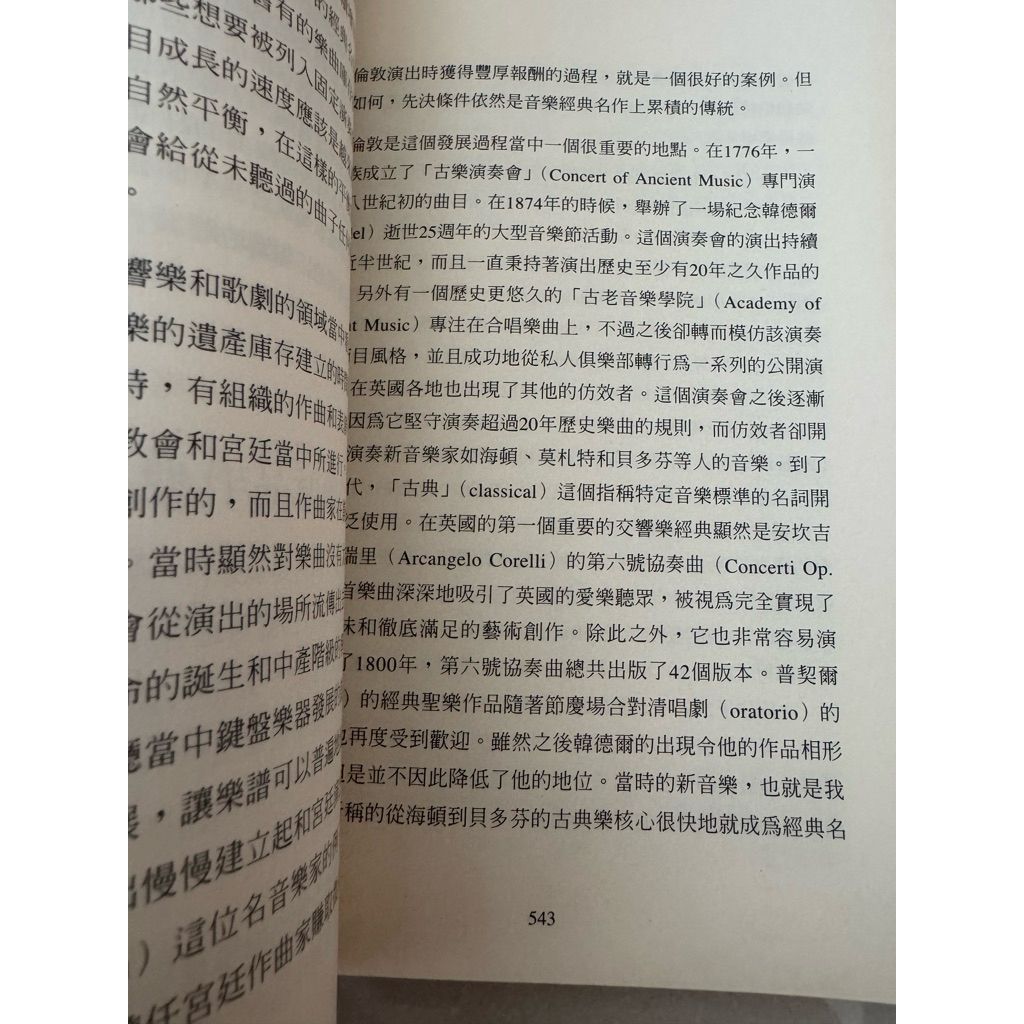 的經典
舊有的樂曲
那些想要被列入固定
目成長的速度應該是
自然平衡，在這樣的平
會給從未聽過的曲子任
。
響樂和歌劇的領域當中
樂的遺產庫存建立的時
時，有組織的作曲和表
教會和宮廷當中所進行
創作的，而且作曲家在
。當時顯然對樂曲沒有
會從演出的場所流傳出
命的誕生和中產階級的
廳當中鍵盤樂器發展的
展，讓樂譜可以普遍
出慢慢建立起和宮廷
）這位名音樂家的
擔任宮廷作曲家賺取
倫敦演出時獲得豐厚報酬的過程，就是一個很好的案例。但
如何，先決條件依然是音樂經典名作上累積的傳統。
倫敦是這個發展過程當中一個很重要的地點。在1776年，一
族成立了「古樂演奏會」（Concert of Ancient Music）專門演
八世紀初的曲目。在1874年的時候，舉辦了一場紀念韓德爾
del）逝世25週年的大型音樂節活動。這個演奏會的演出持續
近半世紀，而且一直秉持著演出歷史至少有20年之久作品的
。另外有一個歷史更悠久的「古老音樂學院」（Academy of
nt Music）專注在合唱樂曲上，不過之後卻轉而模仿該演奏
節目風格，並且成功地從私人俱樂部轉行爲一系列的公開演
在英國各地也出現了其他的仿效者。這個演奏會之後逐漸
因爲它堅守演奏超過20年歷史樂曲的規則，而仿效者卻開
演奏新音樂家如海頓、莫札特和貝多芬等人的音樂。到了
代，「古典」（classical）這個指稱特定音樂標準的名詞開
泛使用。在英國的第一個重要的交響樂經典顯然是安坎吉
瑞里（Arcangelo Corelli）的第六號協奏曲（Concerti Op.
首樂曲深深地吸引了英國的愛樂聽眾，被視爲完全實現了
味和徹底滿足的藝術創作。除此之外，它也非常容易演
了1800年，第六號協奏曲總共出版了42個版本。普契爾
）的經典聖樂作品隨著節慶場合對清唱劇（oratorio）的
也再度受到歡迎。雖然之後韓德爾的出現令他的作品相形
但是並不因此降低了他的地位。當時的新音樂，也就是我
所稱的從海頓到貝多芬的古典樂核心很快地就成爲經典名
543